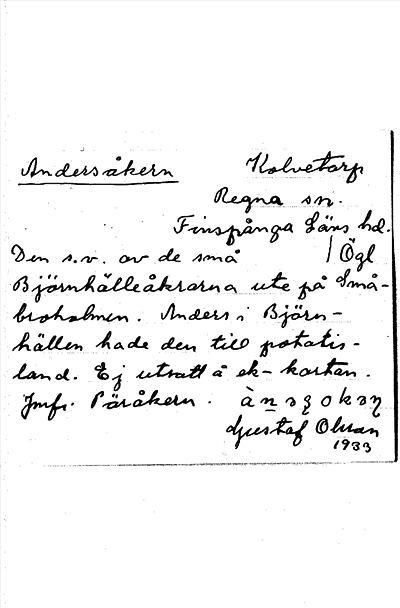 Andersåkern Kolvetorp
Regna sn.
Finspånga Läns hd.
Den s.v. av de små / Ögl
Björnhälleåkrarna ute på Små-
broholmen. Anders i Björn-
hällen hade den till potatis-
land. Ej utsatt å ek-kartan.
Jmfr. Päråkern.
Gustaf Olsson
1933